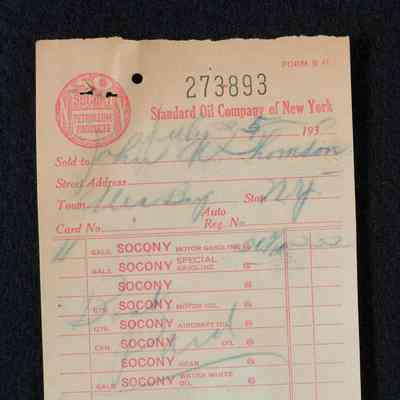 FORM B 11
273893
SOCONY
PETROLEUM
PRODUCTS
Standard Oil Company of New York
July 5 193
Sold to John Thomson
Street Address
Town State NY
Card No. Auto Reg. No.
GALS. SOCONY MOTOR GASOLINE @
GALS. SOCONY SPECIAL GASOLINE @
SOCONY @
QTS. SOCONY MOTOR OIL @
QTS. SOCONY AIRCRAFT OIL @
CAN SOCONY OIL @
SOCONY GEAR @
GALS. SOCONY WATER WHITE OIL @
SOCONY @